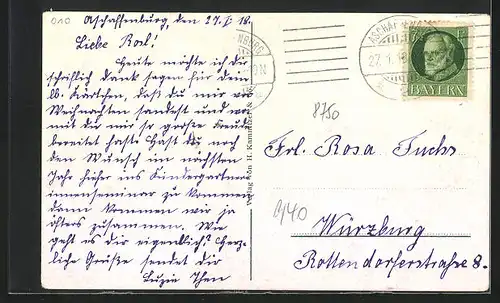 010
Aschaffenburg, den 27. I 18.
Liebe Rosl!
Heute möchte ich dir
schriftlich dank sagen für dein
lb. Kärtchen, daß du mir vor
Weihnachten sandest und wo
mit du mir so große Freude
bereitet hast. Hast du noch
den Wunsch im nächsten
Jahr hieher ins Kindergärtner
innenseminar zu kommen
dann kommen wir ja
öfters zusammen. Wie
geht es dir eigentlich? Herz-
liche Grüße sendet dir
Luzie Then
Verlag von H.
ASCHAFFENBURG
27. 1. 18
BAYERN
8750
Frl. Rosa Fuchs
940
Würzburg
Rottendorferstraße 8.